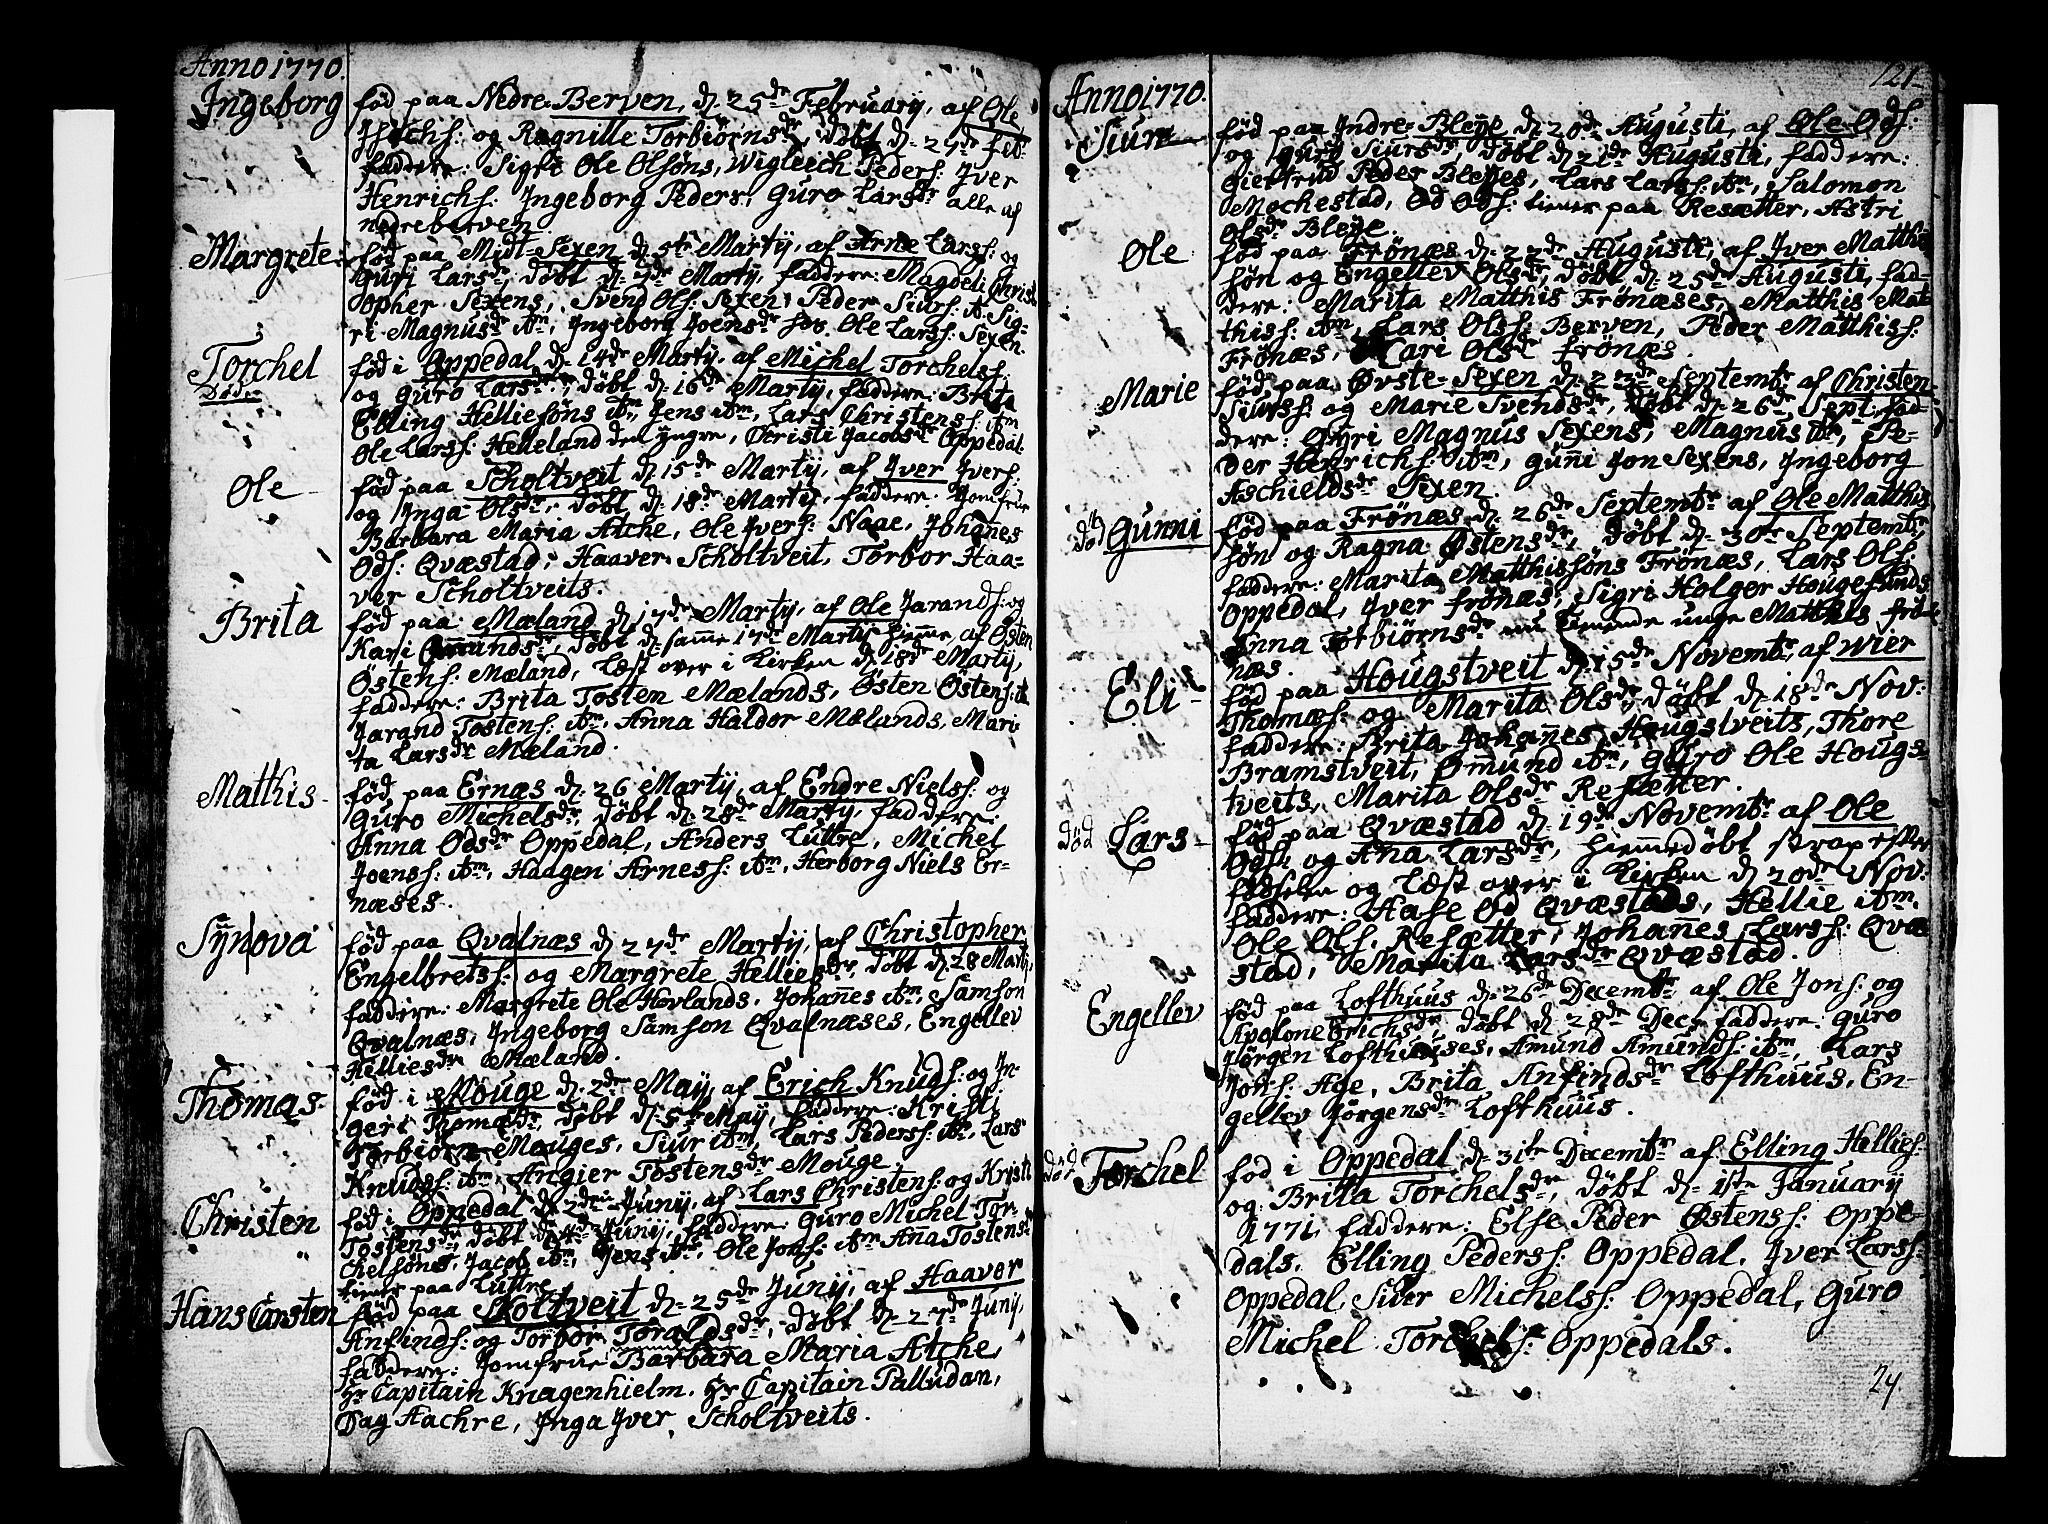 Anno 1770.
Ingeborg
fød paa Nedre-Berven, d. 25de Februarij, af Ole
og Ragnille Torbiørnsdr, døbt d. 27de Feb.
faddere: Sigri Ole Olsøns, Wigleech Peders: Iver
Henrichs: Ingeborg Peders, Guro Larsdr alle af
nedreberven
Margrete
fød paa Midt-Sexen d. 5te Martij, af Arne Larss: og
Guri Larsdr, døbt d. Martij, faddere: Magdeli Christ
opher Sexens, Svend Ols: Sexen, Peder Siurs: it. Sig-
ri Magnusdr itm, Ingeborg Joensdr hos Ole Larss: Sexen.
Torchel
Døde
fød i Oppedal d. 14de Martij, af Michel Torchelss:
og Guro Larsdr døbt d. 16de Martij, faddere: Brita
Elling Helliesøns itm, Jens itm, Lars Christenss: itm
Ole Larss: Helleland den yngre, Christi Jacobsdr Oppedal
Ole
fød paa Scholtveit d. 15de Martij, af Iver Ivers:
og Inga Olsdr, døbt d. 18de Martij, faddere: Jomfrue
Barbara Maria Atche, Ole Ivers: Naae, Johanes
Ods: Qvæstad, Haaver Scholtveit, Torbor Haa-
ver Scholtveits.
Brita
fød paa Mæland d. 17de Martij, af Ole Jarands: og
Kari dr døbt d. samme 17de Martij hieme af Østen
Østens: Mæland, Læst over i Kirken d. 18de Martij,
faddere: Brita Tosten Mælands, Østen Østens: it
Jarand Tostens: itm, Anna Haldor Mælands, Mari
ta Larsdr Mæland.
Matthis
fød paa Ernæs d. 26 Martij, af Endre Nielss: og
Guro Michelsdr, døbt d. 28de Martij, faddere:
Anna Odsdr Oppedal, Anders Luttre, Michel
Joenss: itm, Haagen Arness: itm, Herborg Niels Er-
næses.
Synova
fød paa Qvalnæs d. 27de Martij, af Christopher
Engelbretss: og Margrete Helliesdr, døbt d. 28 Martij,
faddere: Margrete Ole Hovlands, Johannes itm, Samson
Qvalnæs, Ingeborg Samson Qvalnæses, Engellev
Helliesdr Mæland.
Thomas
fød i Mouge d. 2de Maij, af Erich Knuds: og In-
geri Thomædr, døbt d. 5te Maij, faddere: Kristi
Torbiørn Mouges, Siur itm, Lars Pederss: itm, Lars
Knudss: itm, Angier Tostensdr Mouge.
Christen
fød i Oppedal d. 2den Junij, af Lars Christens: og Kristi
Tostensdr, døbt d. 4de Junij, faddere: Guro Michel Tor-
chelsøns, Jacob itm, Jens itm, Ole Jons: itm Ana Tostensdr
tiener paa Luttre
Hans Carsten
fød paa Skoltveit d. 25de Junij, af Haaver
Anfinds: og Torbor Toraldsdr, døbt d. 27de Junij,
faddere: Jomfrue Barbara Maria Atche,
Hr Capitain Knagenhielm, Hr Capitain Palludan,
Dag Aachre, Inga Iver Scholtveits.
121
Anno 1770.
Siur
fød paa Indre-Bleye d. 20de Augusti, af Ole Ods:
og Guri Siursdr, døbt d. 21de Augusti, faddere:
Giertrud Peder Bleyes, Lars Larss: itm, Salomon
Mochestad, Od Ods: tiener paa Resætter, Astri
Olsdr Bleye.
Ole
fød paa Frönæs d. 22de Augusti, af Iver Matthis
søn og Engellev Olsdr, døbt d. 25de Augusti, fad-
dere: Marita Matthis Frönæses, Matthis Mat
thiss: itm, Lars Olss: Berven, Peder Matthiss:
Frönæs, Kari Olsdr Frönæs.
Marie
fød paa Øvste-Sexen d. 23de Septembr af Christen
Siurss: og Marie Svendsdr, døbt d. 26de Sept. fad-
dere: Gyri Magnus Sexens, Magnus itm, Pe-
der Henrichs: itm, Gunni Jon Sexens, Ingeborg
Aschieldsdr Sexen.
død Gunni
fød paa Frönæs d. 26de Septembr af Ole Matthis
søn og Ragna Østensdr, døbt d. 30te Septembr,
faddere: Marita Matthissøns Frönæs, Lars Ols:
Oppedal, Iver Frönæs, Sigri Holger Hougesunds
Anna Torbiørnsdr nu tienende unge Matthis Frö-
næs.
Eli
fød paa Hougstveit d. 15de Novembr, af Wier
Tholmæs: og Marita Olsdr, døbt d. 18de Nov:
faddere: Brita Johanes Hougstveits, Thore
Bramstveit, Ømund itm, Guro Ole Hougs-
tveits, Marita Olsdr Resætter.
død Lars
fød paa Qvæstad d. 19de Novembr af Ole
Ods: og Ana Larsdr, hiemedøbt strax efter
fødselen og Læst over i Kirken d. 20de Nov:
faddere: Hase Od Qvæstads, Hellie itm.
Ole Ols. Resætter, Johannes Larss: Qvæ
stad, Marita Larsdr Qvæstad.
Engellev
fød paa Lofthuus d. 26de Decembr af Ole Jons: og
Apolone Erichsdr, døbt d. 28de Decr faddere: Guro
Jørgen Lofthuuses, Amund Amunds: itm, Lars
Jons: Age, Brita Anfindsdr Lofthuus, En-
gellev Jørgensdr Lofthuus.
død Torchel
fød i Oppedal d. 31te Decembr af Elling Hellies:
og Brita Torchelsdr, døbt d. 1ste January
1771, faddere: Else Peder Østenss: Oppe-
dals. Elling Pederss: Oppedal, Iver Larss:
Oppedal, Siver Michelss: Oppedal, Guro
Michel Torchels: Oppedals.
24